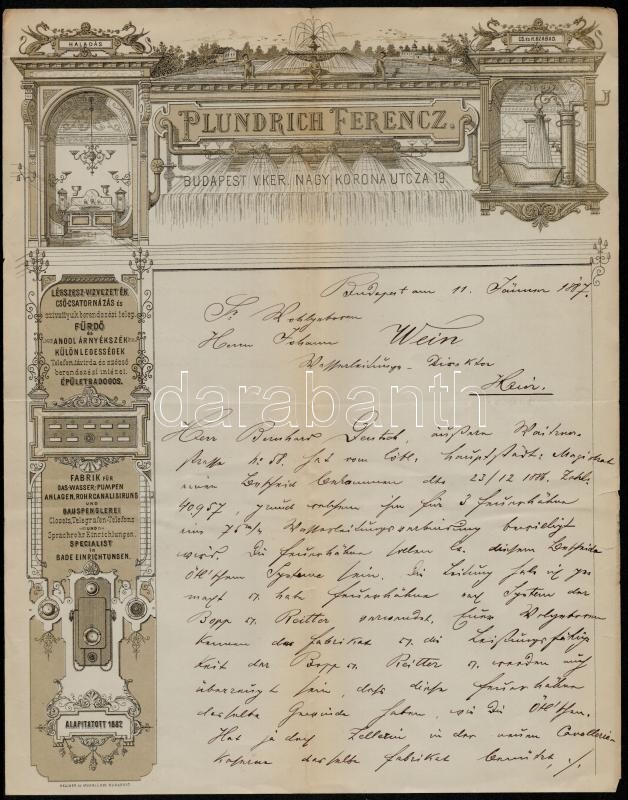 HALADÁS
CS. és K. SZABAD.
PLUNDRICH FERENCZ.
BUDAPEST V. KER. NAGY KORONA UTCZA 19.
LÉGSZESZ-VIZVEZETÉK
CSŐ-CSATORNÁZÁS és
szivattyuk berendezési telep.
FÜRDŐ
és
ANGOL ÁRNYÉKSZÉK
KÜLÖNLEGESSÉGEK
Telefon, távirda és szócső
berendezési intézet.
ÉPÜLETBÁDOGOS.
FABRIK FÜR
GAS-WASSER-PUMPEN
ANLAGEN, ROHRCANALISIRUNG
UND
BAUSPENGLEREI
Closets, Telegrafen-Telefons
UND
Sprachrohr Einrichtungen.
SPECIALIST
in
BADE EINRICHTUNGEN.
ALAPITATOTT 1882
Budapest am 11. Jänner 1887.
Sr Wohlgeboren
Herrn Johann Wein
Wasserleitungs-Direktor
Hier.
Herr Bernhard Deutsch, äußere Waitzner-
strasse No 58. hat vom löbl. hauptstädt: Magistrat
einen Bescheid bekommen dto 23/12 1886. Zahl
40957, für 3 Feuerhähne
eine 75 m/m Wasserleitungsverbindung bewilligt
wird. Die Feuerhähne sollen diesem Bescheide
System sein. Die Leitung habe ich ge-
macht Feuerhähne nach System der
Bopp & Reitter verwendet. Euer Wolgeboren
kennen das Fabrikat die Leistungsfähig-
keit der Bopp & Reitter werden auch
überzeugt sein, dass diese Feuerhähne
dasselbe Gewinde haben, wie die
Hat ja doch Zellerin in der neuen Cavallerie-
Kaserne dasselbe Fabrikat benützt, ./.
darabanth